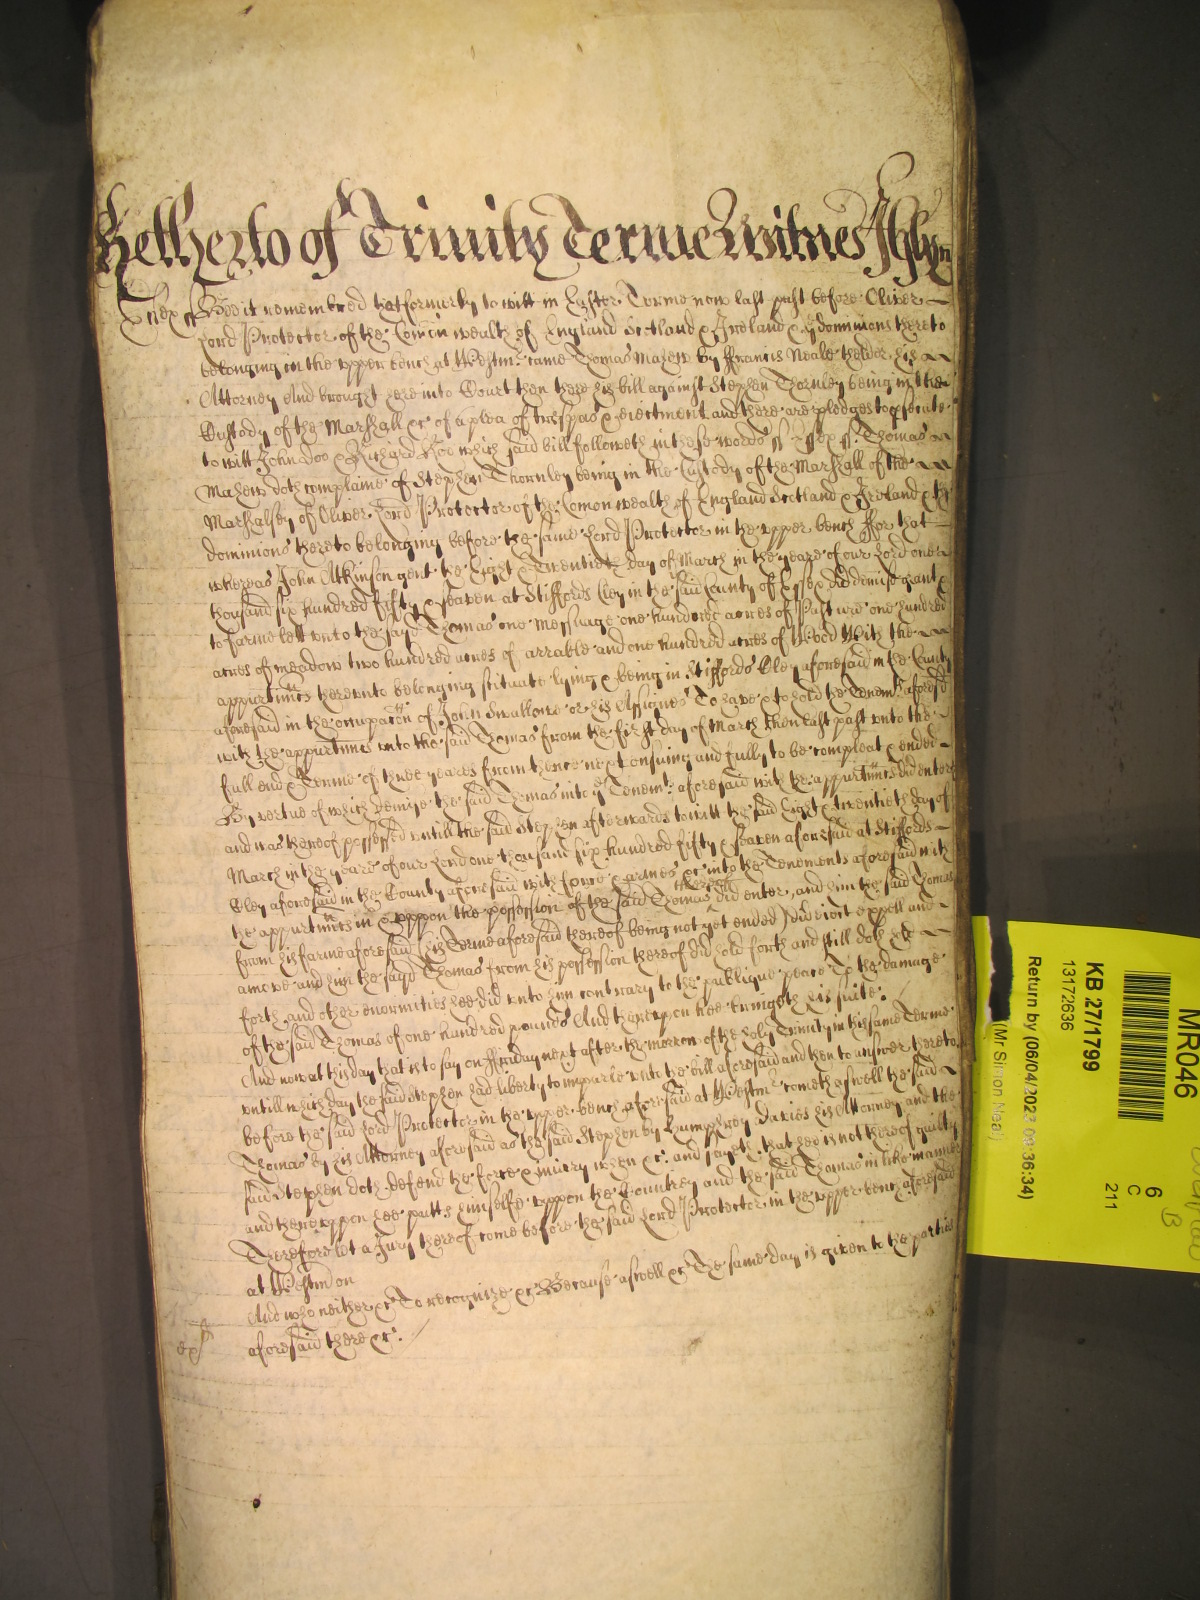 Hetherto of Trinity Terme Witnes Ashlyn
Essex ss Bee it remembred that formerly to witt in Easter Terme now last past before Oliver
Lord Protector of the Comon wealth of England Scotland & Ireland & ye dominions thereto
belonging in the upper bench at Westmr came Thomas Mahew by ffrancis Neale thelder his
Attorney And brought here into Court then there his bill against Stephen Thornley being in the
Custody of the Marshall &c of a plea of trespas & eiectment and there are pledges to psecute
to witt John Doo & Richard Roo which said bill followeth in these words ss Essex ss Thomas
Mahew doth complaine of Stephen Thornley being in the Custody of the Marshall of the
Marshalsey of Oliver Lord Protector of the Comon wealth of England Scotland & Ireland & the
dominions thereto belonging before the same Lord Protector in the upper bench ffor that
whereas John Atkinson gent the Eight & Twentieth day of March in the yeare of our Lord one
thousand six hundred fifty & seaven at Stiffords Cley in the said County of Essex did demise grant &
to farme lett unto the sayd Thomas one messuage one hundred acres of Pasture one hundred
acres of meadow two hundred acres of arrable and one hundred acres of Wood With the
appurtints thereunto belonging scituate lying & being in Stiffords Cley aforesaid in the County
aforesaid in the occupacon of John Swallowe or his Assignes To have & to hold the Tenemts aforesd
with the appurtints unto the said Thomas from the first day of March then last past unto the
full end & Terme of three yeares from thence next ensuing and fully to be compleat & ended
By vertue of which demise the said Thomas into ye Tenemts aforesaid with the appurtints did enter
and was thereof possessed untill the said Stephen afterwards to witt the said Eight & twentieth day of
March in the yeare of our Lord one thousand six hundred fifty & seaven aforesaid at Stiffords
Cley aforesaid in the County aforesaid with force & armes &c into the Tenements aforesaid with
the appurtints in & uppon the possession of the said Thomas thereof did enter, and him the said Thomas
from his farme aforesaid (his Terme aforesaid thereof being not yet ended) did eiect expell and
amove and him the sayd Thomas from his possession thereof did hold forth and still doth hold
forth and other enormities hee did unto him contrary to the publique peace To the damage
of the said Thomas of one hundred pounds And thereupon hee bringeth his suite.
And now at this day that is to say on ffriday next after the morrow of the holy Trinity in this same Terme
untill which day the said Stephen had liberty to imparle unto the bill aforesaid and then to answer thereto
before the said Lord Protector in the upper bench aforesaid at Westmr cometh aswell the said
Thomas by his Attorney aforesaid as the said Stephen by Humphrey Davies his Attorney and the
said Stephen doth defend the force & iniury when &c. and sayeth that hee is not thereof guilty
and thereuppon hee putts himselfe uppon the Countrey and the said Thomas in like manner
Therefore let a Jury thereof come before the said Lord Protector in the upper bench aforesaid
at Westmr on
And who neither &c To recognize &c Because aswell &c The same day is given to the parties
aforesaid there &c.
MR046
6
C
211
KB 27/1799
13172636
Return by (06/04/2023 09:36:34)
(Mr Simon Neal)